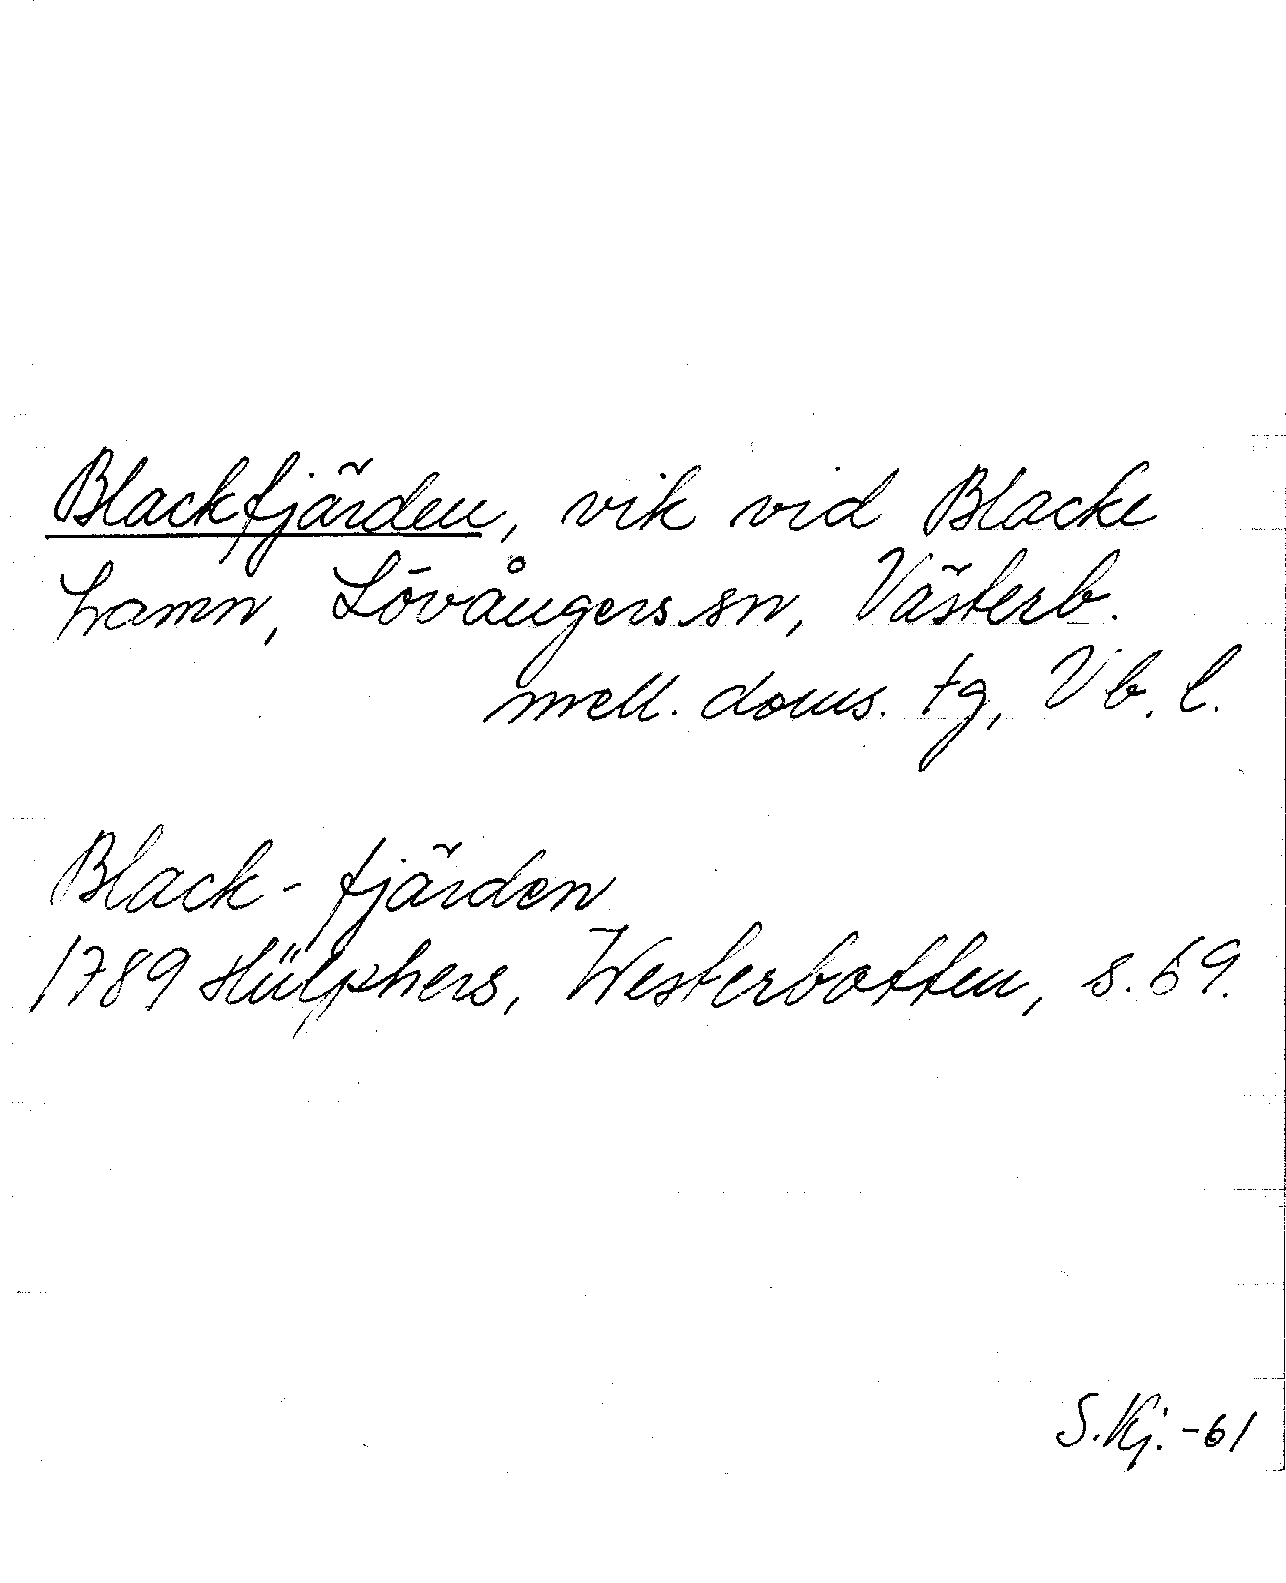 Blackfjärden, vik vid Blacke
hamn, Lövångers sn, Västerb.
mell. doms. tg, Vb. l.
Black-fjärden
1789 Hülphers, Westerbotten, s. 69.
S. Kj. -61